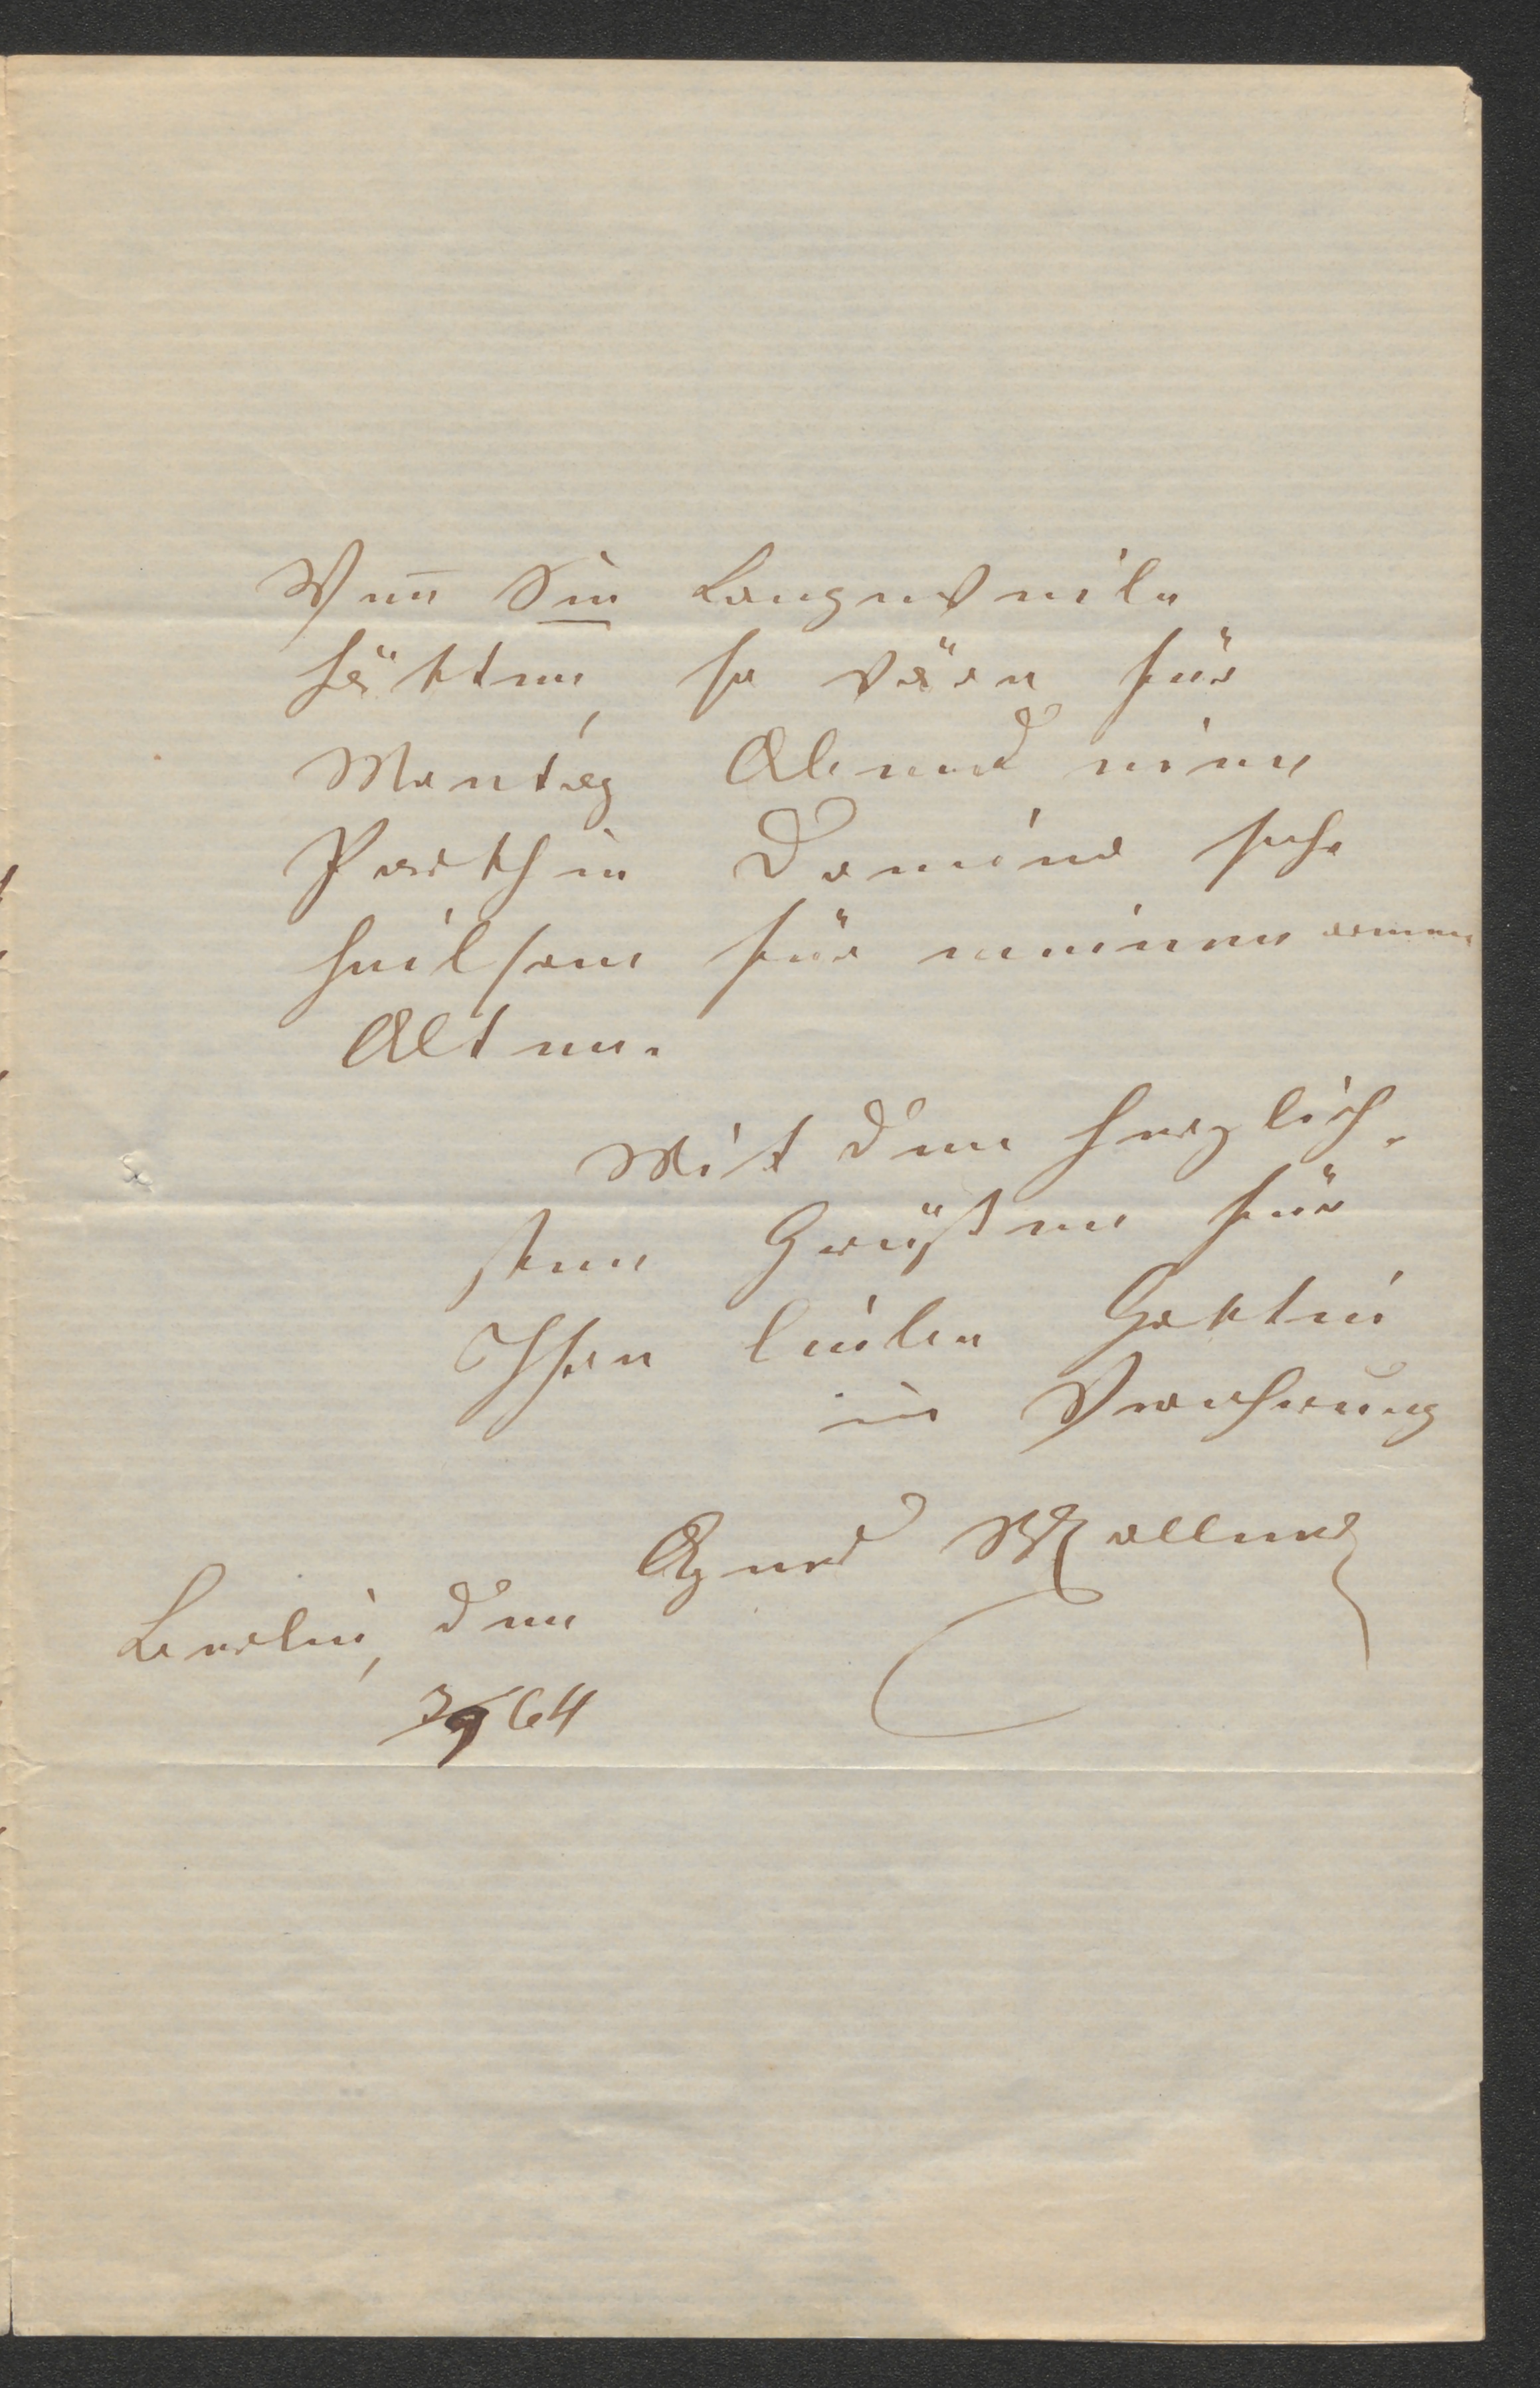 Wen̄ Sie Langeweile
hätten, so wäre für
Montag Abend eine
Parthie Domino sehr
heilsam für meinen armen
Alten.
Mit den herzlich-
sten Grüßen für
Ihre liebe Gattin
in Verehrung
Agnes Wallner
Berlin, den
3/9 64